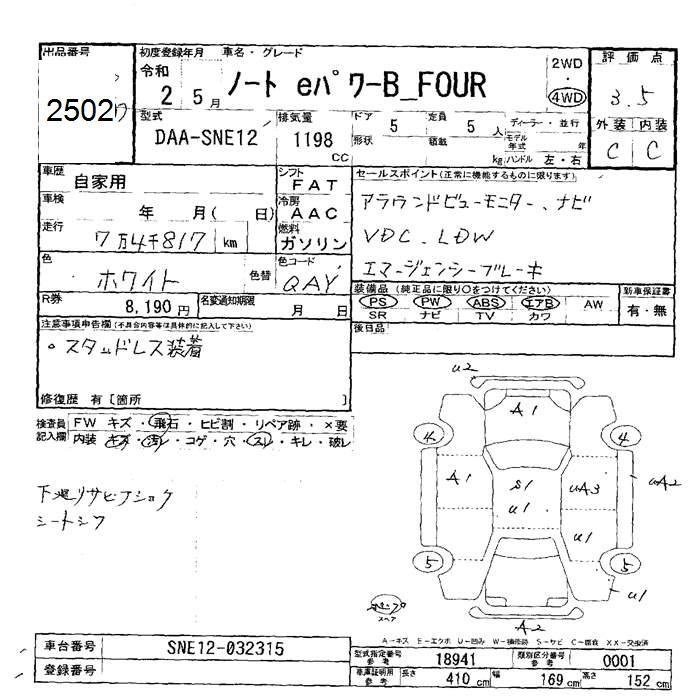 出品番号
2502
初度登録年月 車名・グレード
令和
2 5月 ノート eパワーB_FOUR
2WD
・
4WD
評価点
3.5
外装 内装
C C
型式
DAA-SNE12
排気量
1198 CC
ドア 5 定員 5人 ディーラー・並行
形状 積載 kg モデル年式 年
ハンドル 左・右
車歴 自家用
シフト FAT
車検 年 月( 日)
冷房 AAC
走行 7万4千817 km
燃料 ガソリン
色 ホワイト 色替
色コード QAY
R券 8,190円 名変通知期限 月 日
セールスポイント(正常に機能するものに限ります)
アラウンドビューモニター、ナビ
VDC、LDW
エマージェンシーブレーキ
装備品(純正品に限り○をつけてください)
PS PW ABS エアB AW
SR ナビ TV カワ
新車保証書
有・無
後日品
注意事項申告欄(不具合内容等は具体的に記入して下さい)
。スタッドレス装着
修復歴 有[箇所 ]
検査員記入欄
FW キズ・飛石・ヒビ割・リペア跡・×要
内装 キズ・汚レ・コゲ・穴・スレ・キレ・破レ
下廻りサビ
U2
A1
4
A1
S1
U1
UA3
UA2
U1
5 5
U1
A2
スペア
A-キズ E-エクボ U-凹み W-補修跡 S-サビ C-腐食 XX-交換済
車台番号 SNE12-032315
登録番号
型式指定番号参考 18941 類別区分番号参考 0001
車庫証明用参考 長さ 410cm 幅 169cm 高さ 152cm